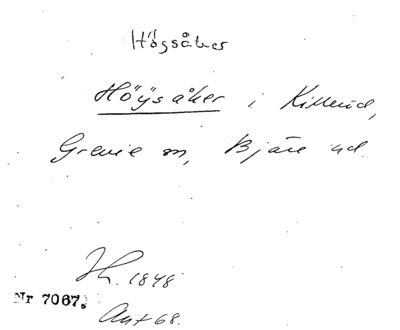 Högsåker
Högsåker i Killeröd,
Grevie sn, Bjäre hd.
Jh. 1848
Nr 7067.
Ant 68.